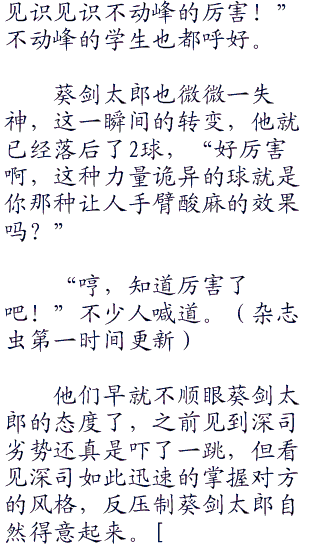 见识见识不动峰的厉害！”
不动峰的学生也都呼好。
葵剑太郎也微微一失
神，这一瞬间的转变，他就
已经落后了2球，“好厉害
啊，这种力量诡异的球就是
你那种让人手臂酸麻的效果
吗？”
“哼，知道厉害了
吧！”不少人喊道。（杂志
虫第一时间更新）
他们早就不顺眼葵剑太
郎的态度了，之前见到深司
劣势还真是吓了一跳，但看
见深司如此迅速的掌握对方
的风格，反压制葵剑太郎自
然得意起来。[